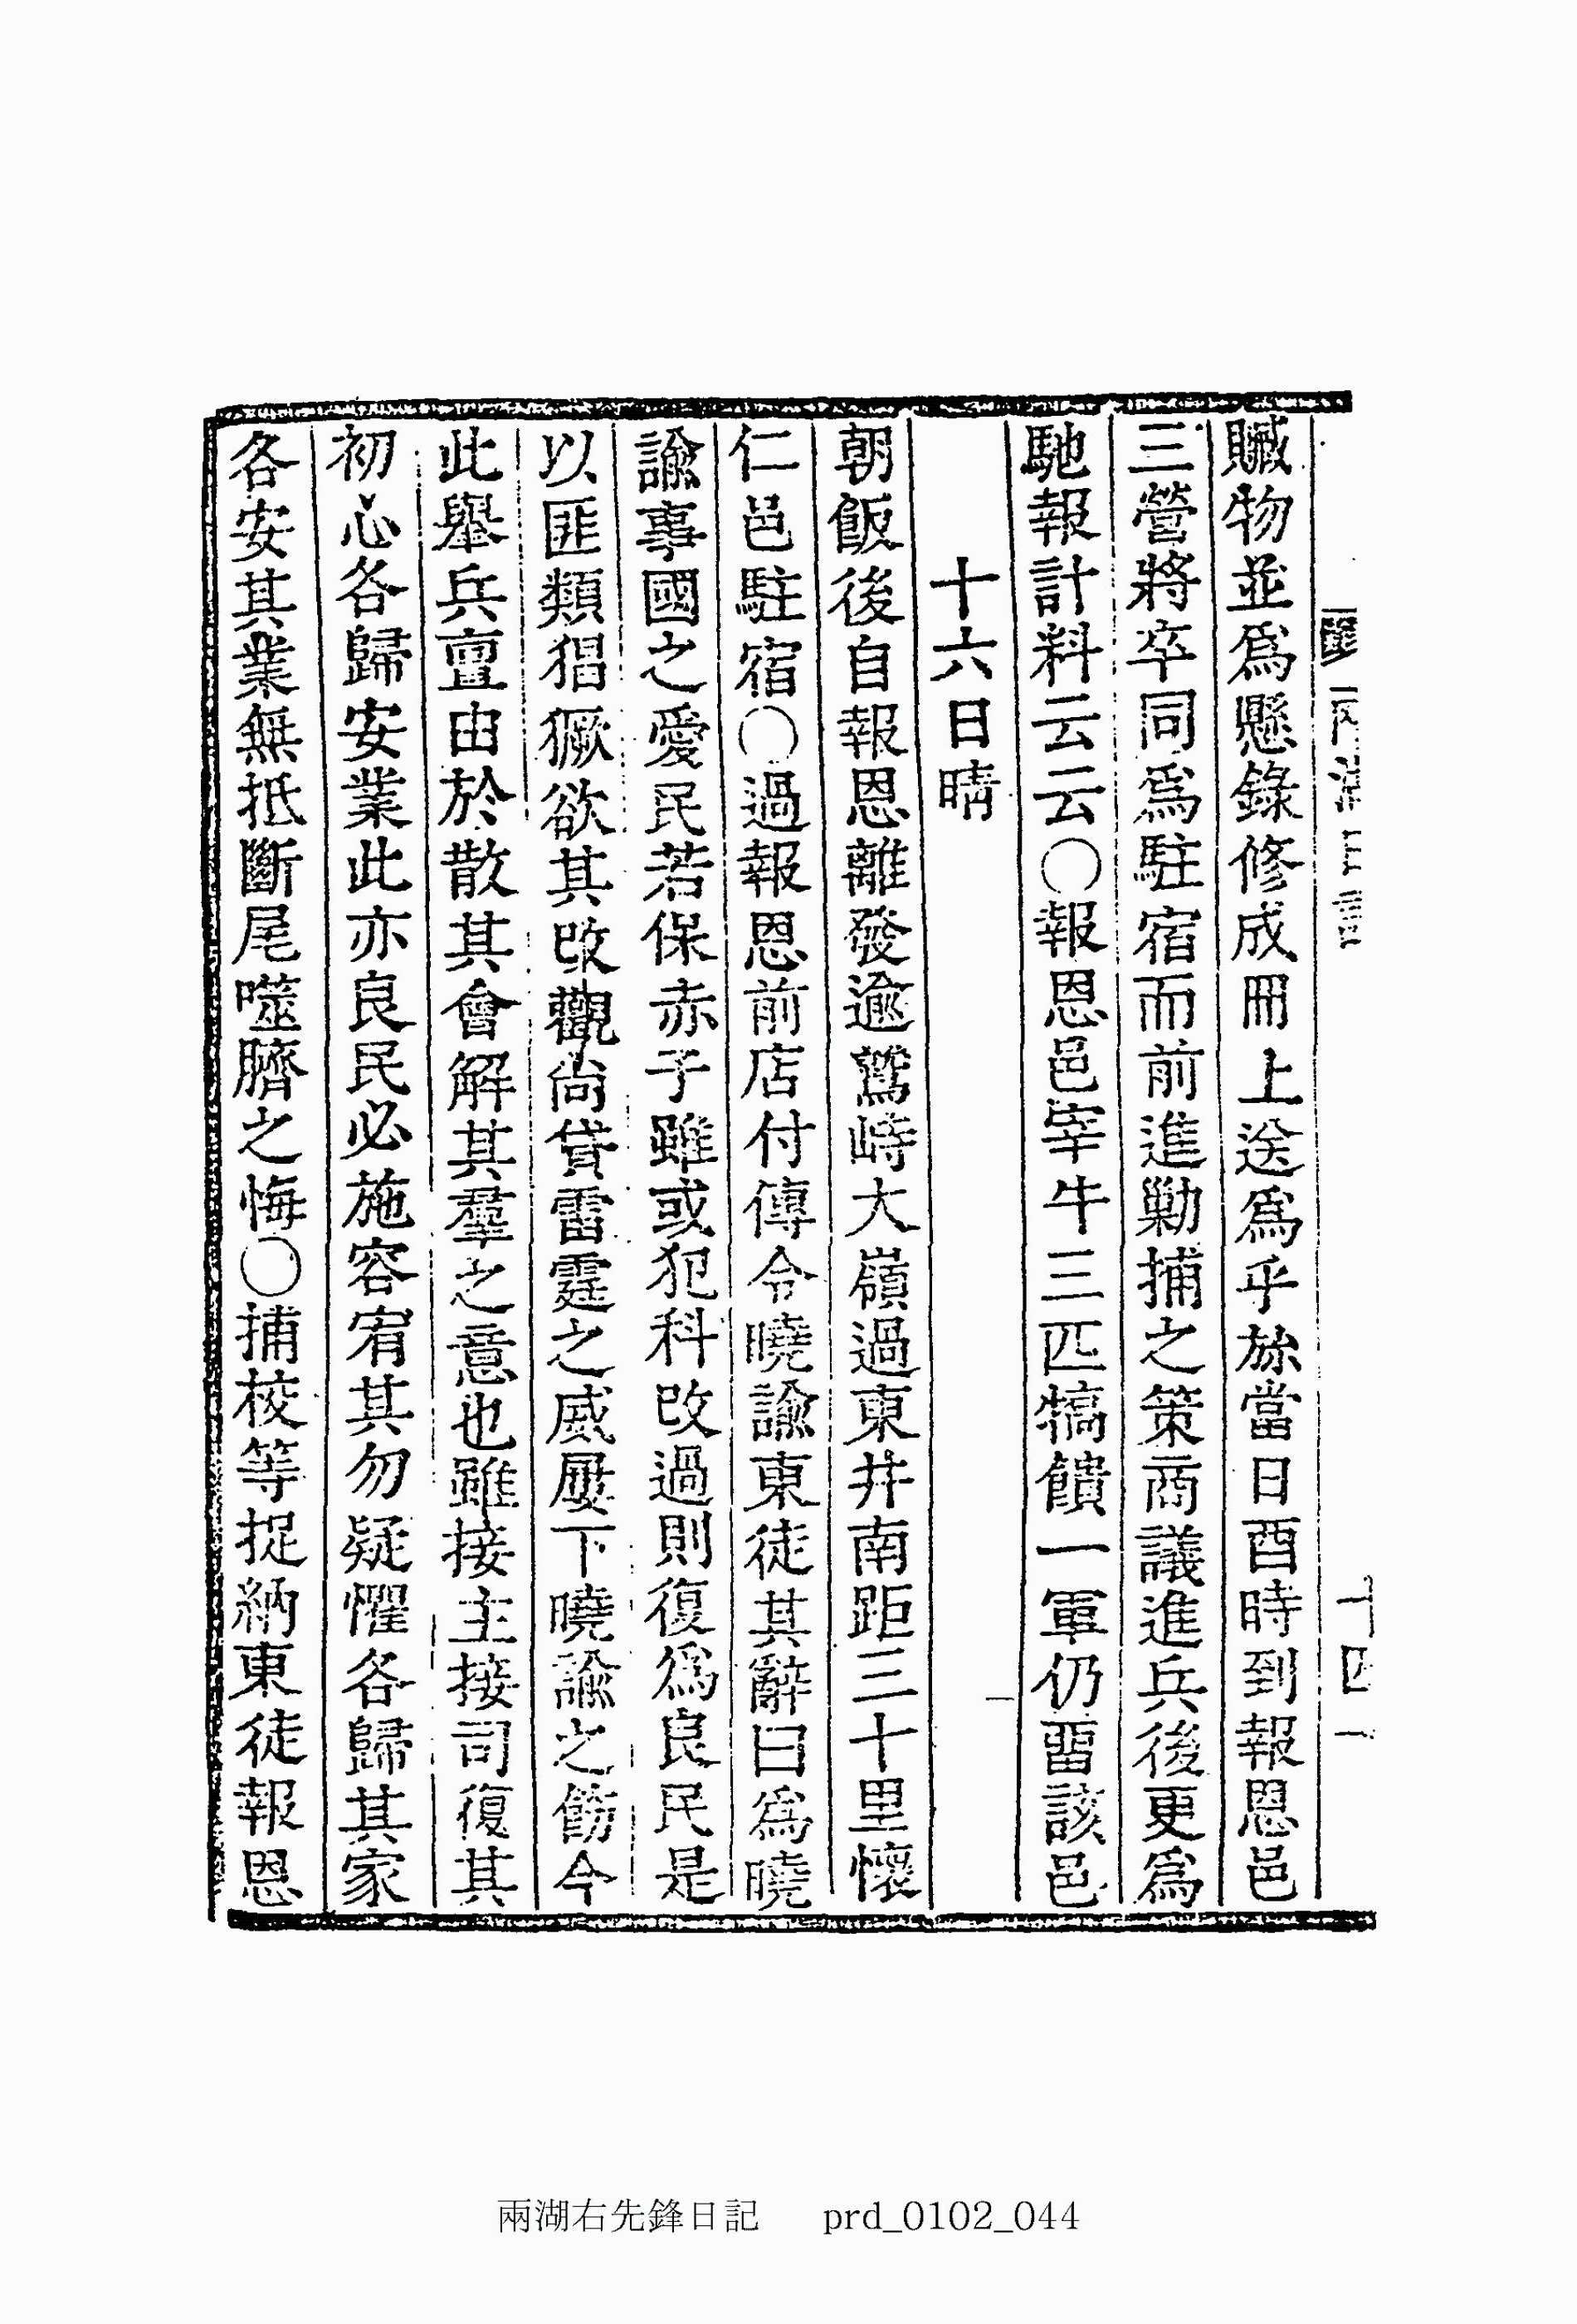 贓物並爲懸錄修成冊上送爲乎旀當日酉時到報恩邑
三營將卒同爲駐宿而前進勦捕之策商議進兵後更爲
馳報計料云云○報恩邑宰牛三匹犒饋一軍仍留該邑
十六日晴
朝飯後自報恩離發逾鷲峙大嶺過東井南距三十里懷
仁邑駐宿○過報恩前店付傳令曉諭東徒其辭曰爲曉
諭事國之愛民若保赤子雖或犯科改過則復爲良民是
以匪類猖獗欲其改觀尙貸雷霆之威屢下曉諭之飭今
此擧兵亶由於散其會解其羣之意也雖接主接司復其
初心各歸安業此亦良民必施容宥其勿疑懼各歸其家
各安其業無抵斷尾噬臍之悔○捕校等捉納東徒報恩
十四
兩湖右先鋒日記 prd_0102_044